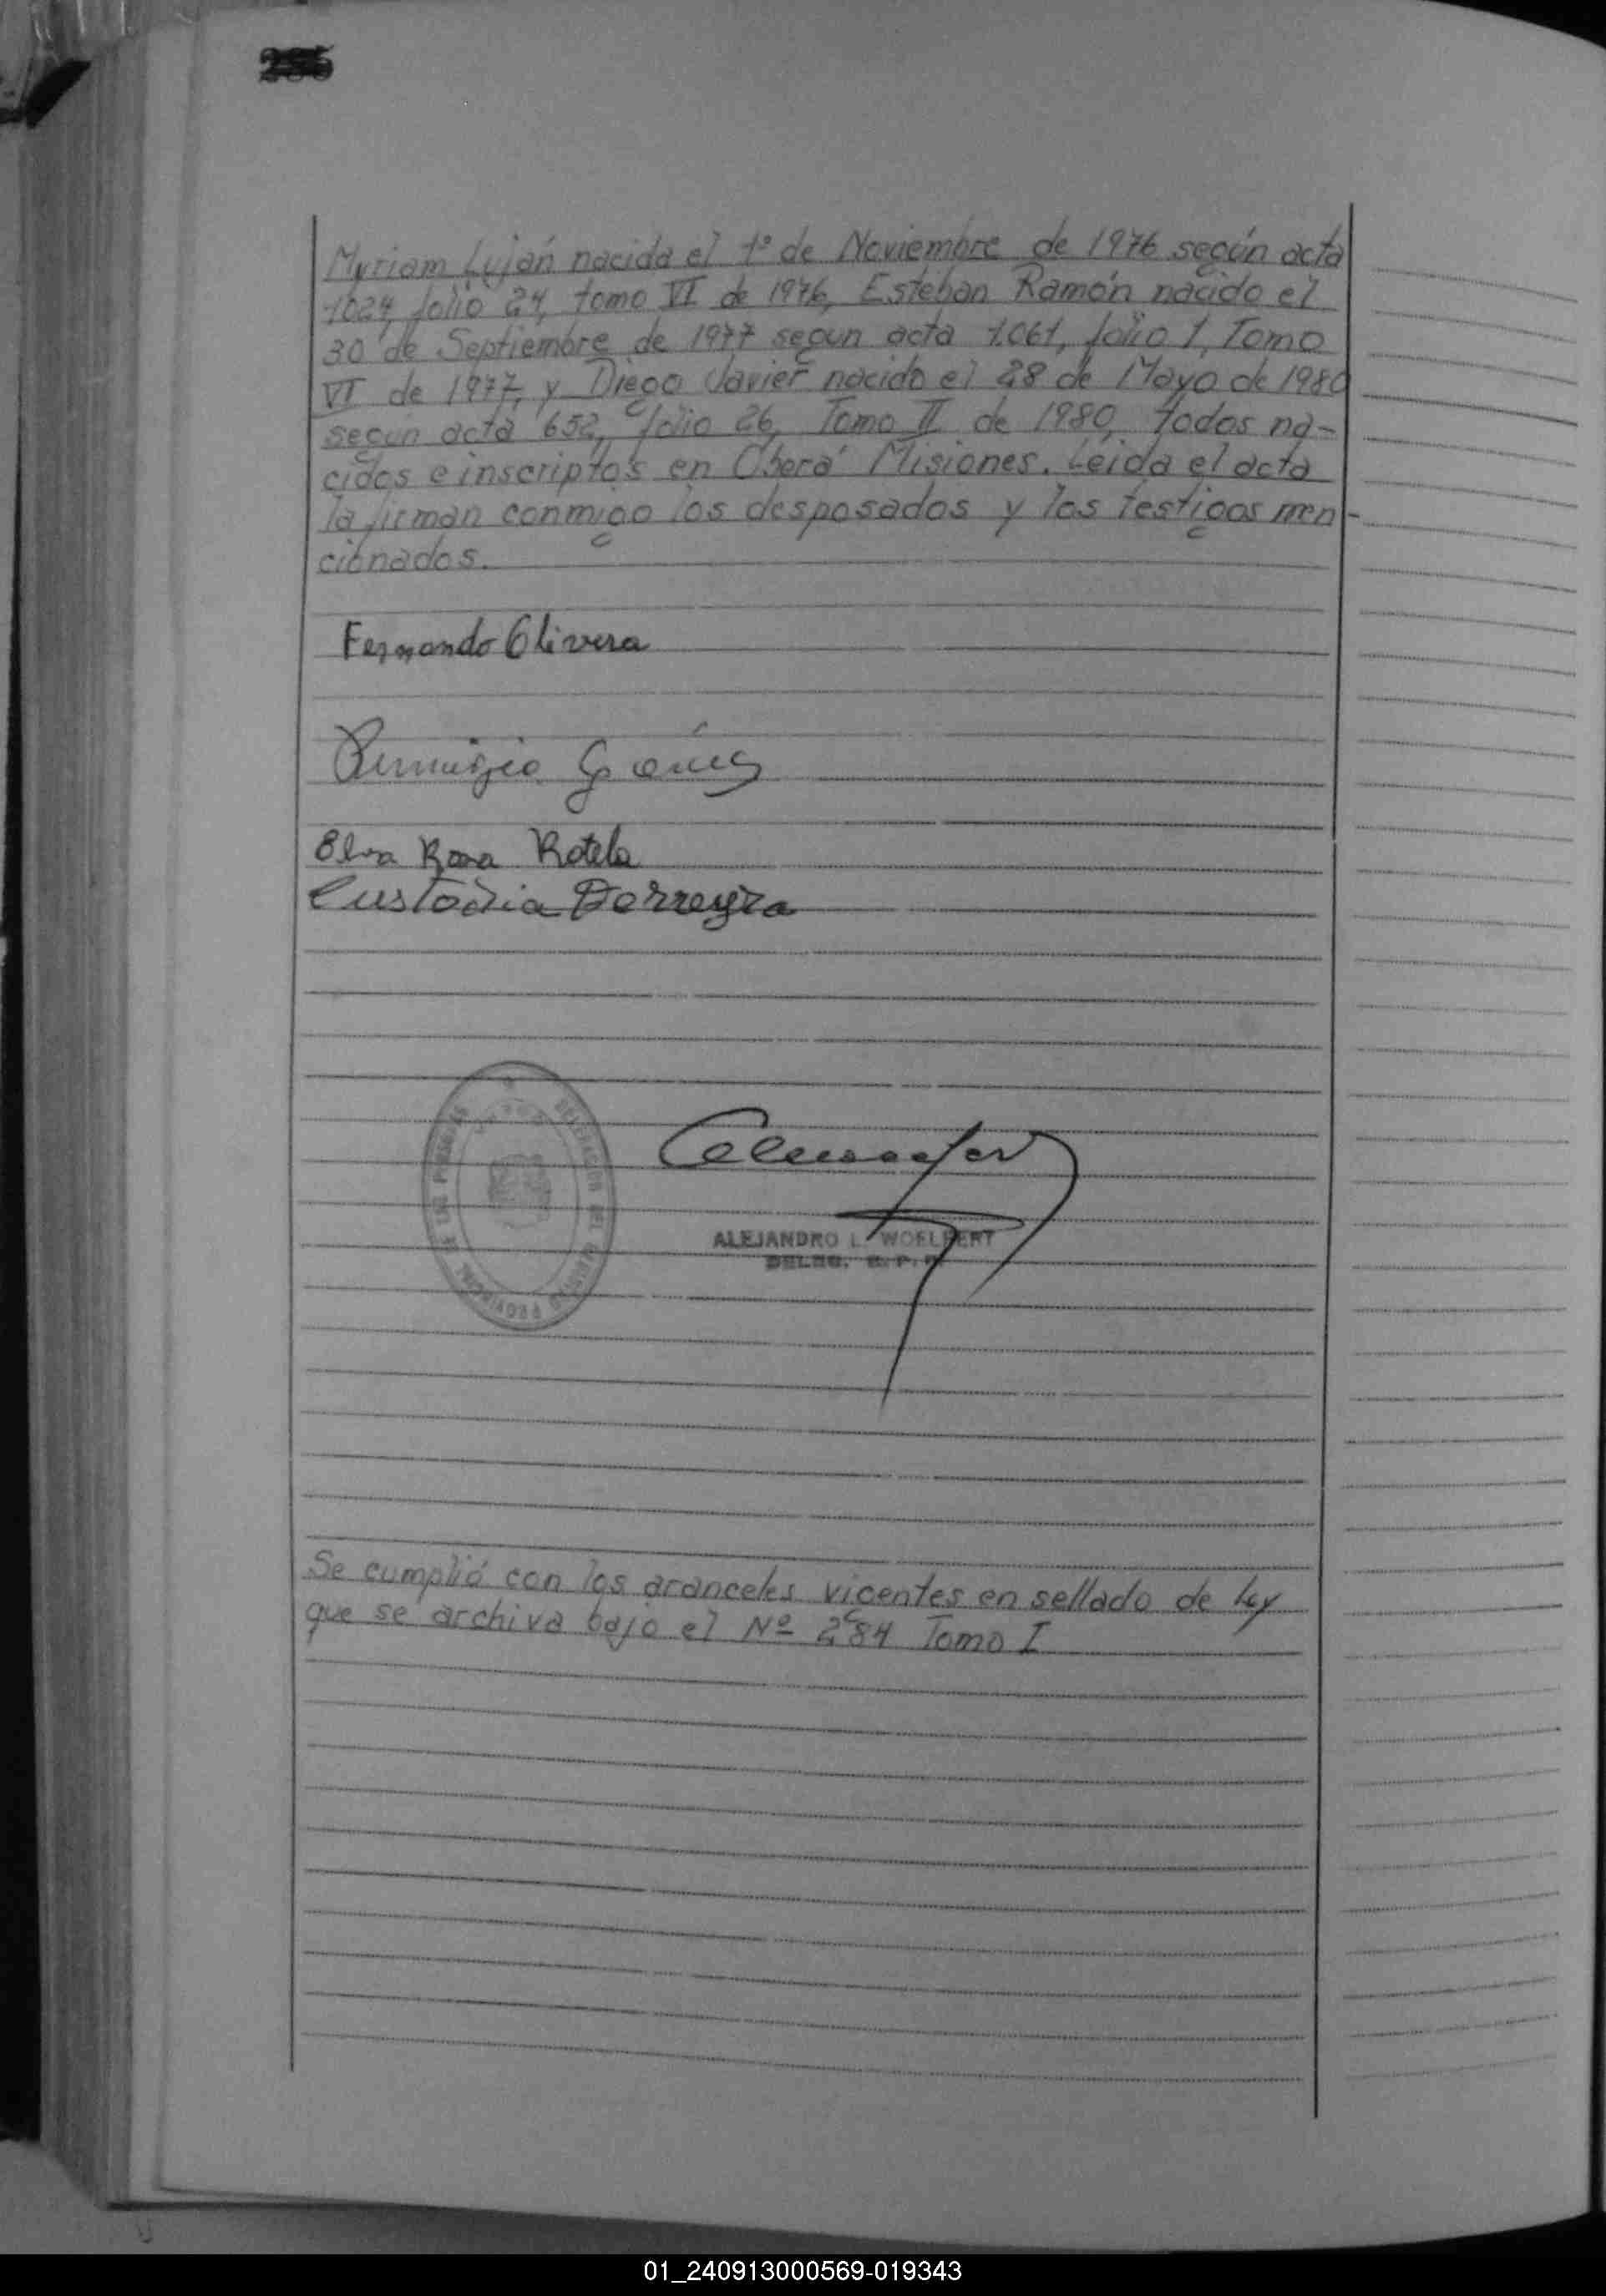 Myriam Luján nacida el 1º de Noviembre de 1976 según acta
1024, folio 24, tomo VI de 1976, Esteban Ramón nacido el
30 de Septiembre de 1977 segun acta 1.061, folio 1, Tomo
VI de 1977, y Diego Javier nacido el 28 de Mayo de 1980
según acta 652, folio 26, Tomo II de 1980, todos na-
cidos e inscriptos en Oberá Misiones. Leida el acta
la firman conmigo los desposados y los testigos men-
cionados.
Fernando Olivera
Elva Rosa Rotela
Custodia Ferreyra
DELEGACION DEL REGISTRO PROVINCIAL DE LAS PERSONAS
ALEJANDRO L. WOELFERT
DELEG. R. P. P.
Se cumplió con los aranceles vigentes en sellado de ley
que se archiva bajo el Nº 284 Tomo I
01_240913000569-019343